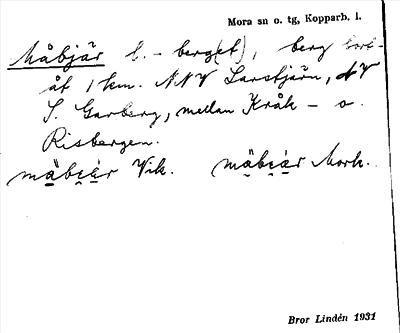 Mora sn o. tg, Kopparb. l.
Måbjär l. - berg(et), berg
åt 1 km. NNV Larstjärn, NV
S. Garberg, mellan Kråk- o.
Risbergen.
mäbi̯är Vik. mäbi̯är Mork.
Bror Lindén 1931